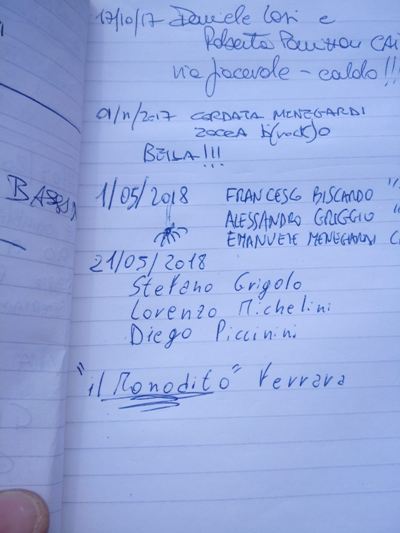 17/10/17 Daniele Cori e
Roberto CAI
via piacevole - caldo!!!
01/11/2017 CORDATA MENEGARDI
ZOCCA
BELLA!!!
1/05/2018 FRANCESCO BISCARDO "
ALESSANDRO GRIGGIO "
EMANUELE MENEGARDI C
21/05/2018
Stefano Grigolo
Lorenzo Michelini
Diego Piccinini
"il Monodito" Ferrara